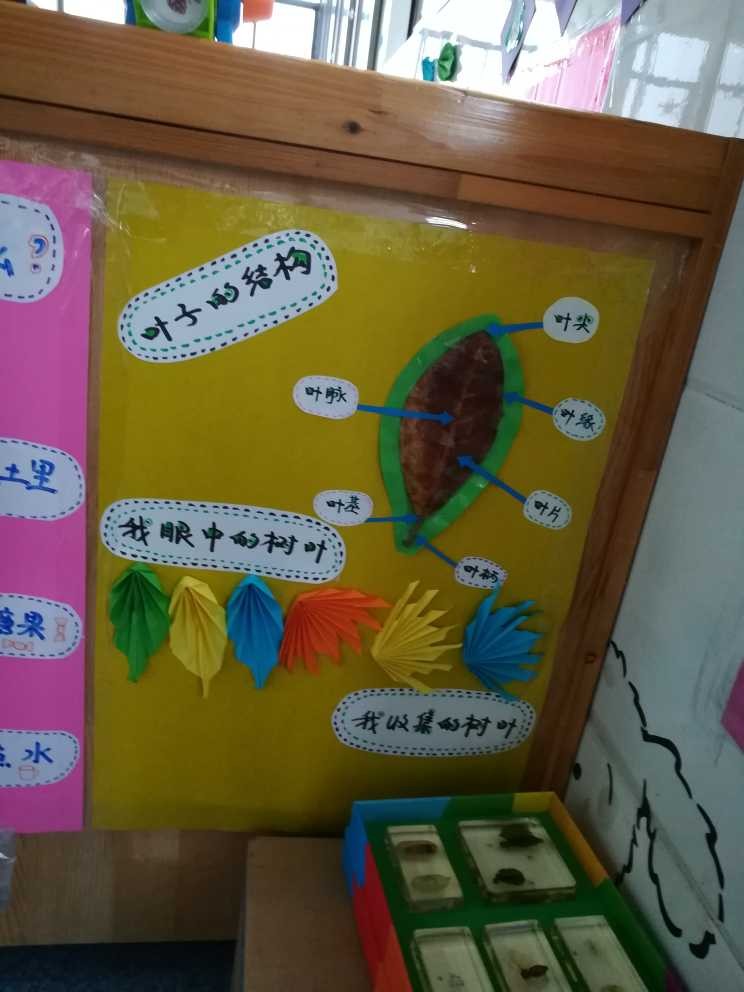 叶子的结构
叶尖
叶脉
叶缘
叶基
叶片
叶柄
我眼中的树叶
我收集的树叶
?
土里
糖果
点水